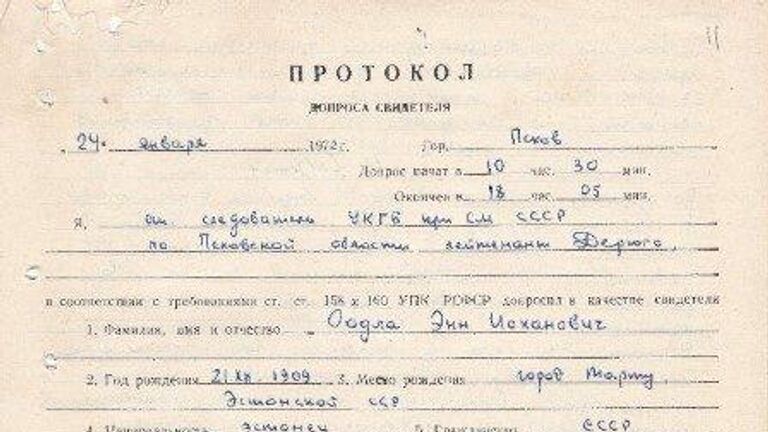 11
ПРОТОКОЛ
ДОПРОСА СВИДЕТЕЛЯ
24. января 1972 г. Гор. Псков
Допрос начат в 10 час. 30 мин.
Окончен в 18 час. 05 мин.
Я, ст. следователь УКГБ при СМ СССР
по Псковской области лейтенант
в соответствии с требованиями ст. ст. 158 и 160 УПК РСФСР допросил в качестве свидетеля
1. Фамилия, имя и отчество Оодла Энн Иоханович
2. Год рождения 21 XII. 1909 3. Место рождения город Тарту,
Эстонской ССР
4. Национальность эстонец 5. Гражданство СССР